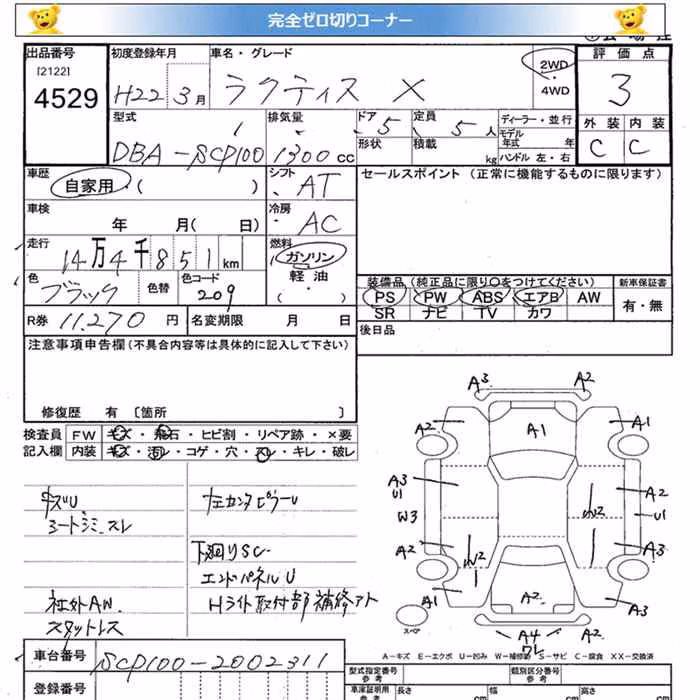 完全ゼロ切りコーナー
出品番号 初度登録年月 車名・グレード 2WD・4WD 評価点
[2122]
4529 H22 3月 ラクティス X 3
型式 排気量 ドア 5 定員 5人 ディーラー・並行 外装 内装
DBA-SCP100 1300cc 形状 積載 kg モデル年式 年式 ハンドル 左・右 C C
車歴 自家用 ( ) シフト AT セールスポイント(正常に機能するものに限ります)
車検 年 月( 日) 冷房 AC
走行 14万4千851km 燃料 ガソリン・軽油・( )
色 ブラック 色替 色コード 209 装備品(純正品に限り○をつけてください) 新車保証書
PS PW ABS エアB AW 有・無
SR ナビ TV カワ
R券 11,270円 名変期限 月 日 後日品
注意事項申告欄(不具合内容等は具体的に記入して下さい)
修復歴 有〔箇所 〕
検査員 FW キズ・飛石・ヒビ割・リペア跡・×要
記入欄 内装 キズ・汚レ・コゲ・穴・スレ・キレ・破レ
シートシミ、スレ
左センタピラーU
下廻りSC
エンドパネルU
社外AW
Hライト取付部補修アト
スタットレス
A3 A2
A2 A1 A1
A3 U1 A2
W3 W2 U1
A2 W2 A3
A1 A2 A3
スペア A4 ワレ A2
A-キズ E-エクボ U-凹み W-補修跡 S-サビ C-腐食 XX-交換済
車台番号 SCP100-2002311
登録番号
型式指定番号 参考 類別区分番号 参考
車庫証明用 参考 長さ cm 幅 cm 高さ cm